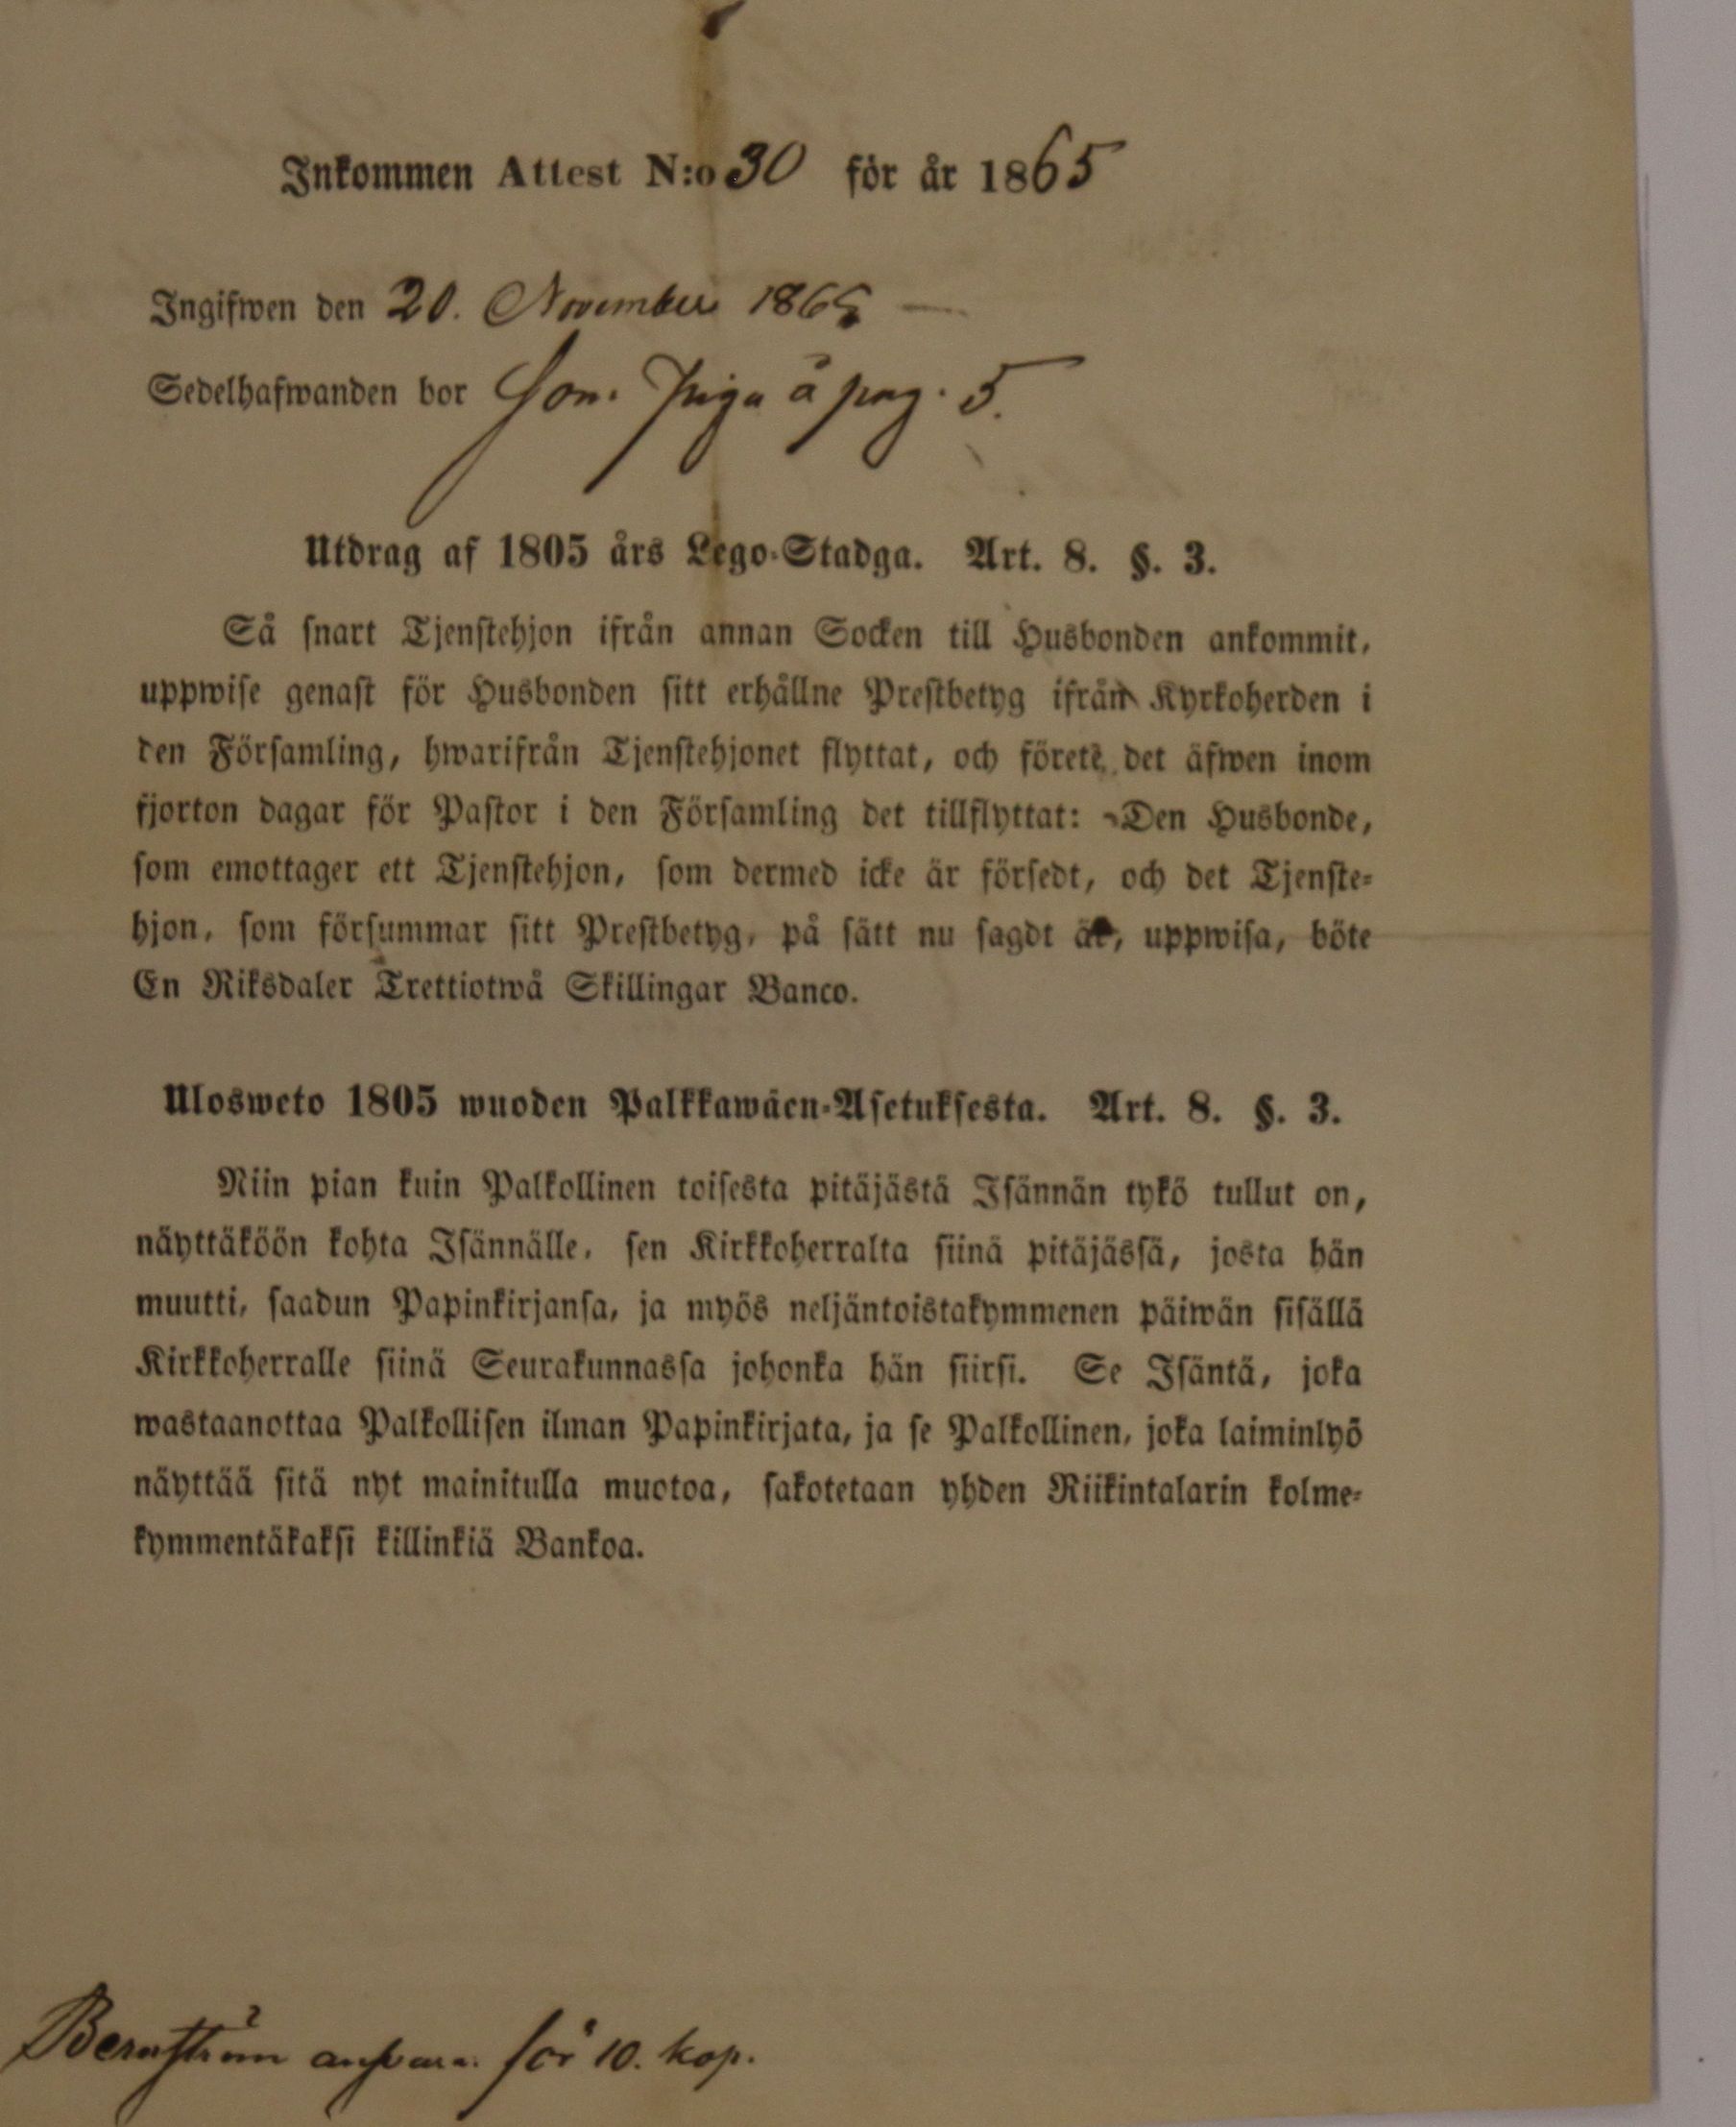 Inkommen Attest N:o 30 för år 1865
Ingifwen den 20. November 1865
Sedelhafwanden bor som Piga å pag. 5.
Utdrag af 1805 års Lego-Stadga. Art. 8. §. 3.
Så snart Tjenstehjon ifrån annan Socken till Husbonden ankommit,
uppwise genast för Husbonden sitt erhållne Prestbetyg ifrån Kyrkoherden i
den Församling, hwarifrån Tjenstehjonet flyttat, och förete det äfwen inom
fjorton dagar för Pastor i den Församling det tillflyttat: Den Husbonde,
som emottager ett Tjenstehjon, som dermed icke är försedt, och det Tjenste-
hjon, som försummar sitt Prestbetyg, på sätt nu sagdt är, uppwisa, böte
En Riksdaler Trettiotwå Skillingar Banco.
Ulosweto 1805 wuoden Palkkawäen-Asetuksesta. Art. 8. §. 3.
Niin pian kuin Palkollinen toisesta pitäjästä Isännän tykö tullut on,
näyttäköön kohta Isännälle, sen Kirkkoherralta siinä pitäjässä, josta hän
muutti, saadun Papinkirjansa, ja myös neljäntoistakymmenen päiwän sisällä
Kirkkoherralle siinä Seurakunnassa johonka hän siirsi. Se Isäntä, joka
wastaanottaa Palkollisen ilman Papinkirjata, ja se Palkollinen, joka laiminlyö
näyttää sitä nyt mainitulla muotoa, sakotetaan yhden Riikintalarin kolme-
kymmentäkaksi killinkiä Bankoa.
Bernström ansvar. för 10. kop.